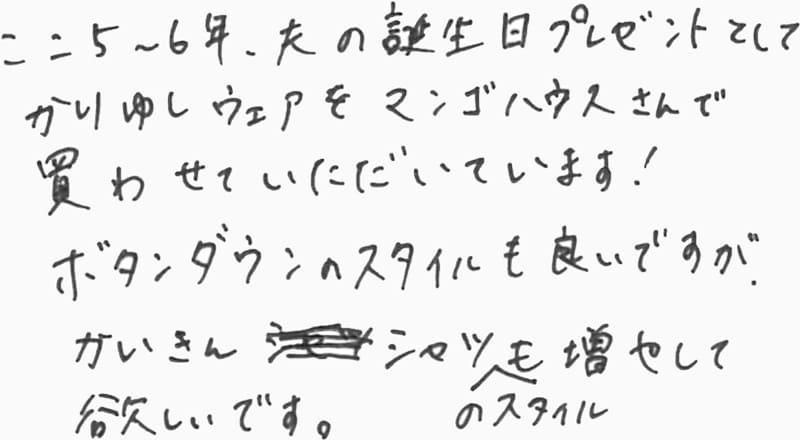 ここ5~6年、夫の誕生日プレゼントとして
かりゆしウェアをマンゴハウスさんで
買わせていただいています!
ボタンダウンのスタイルも良いですが、
かいきんシャツも増やして
欲しいです。
のスタイル